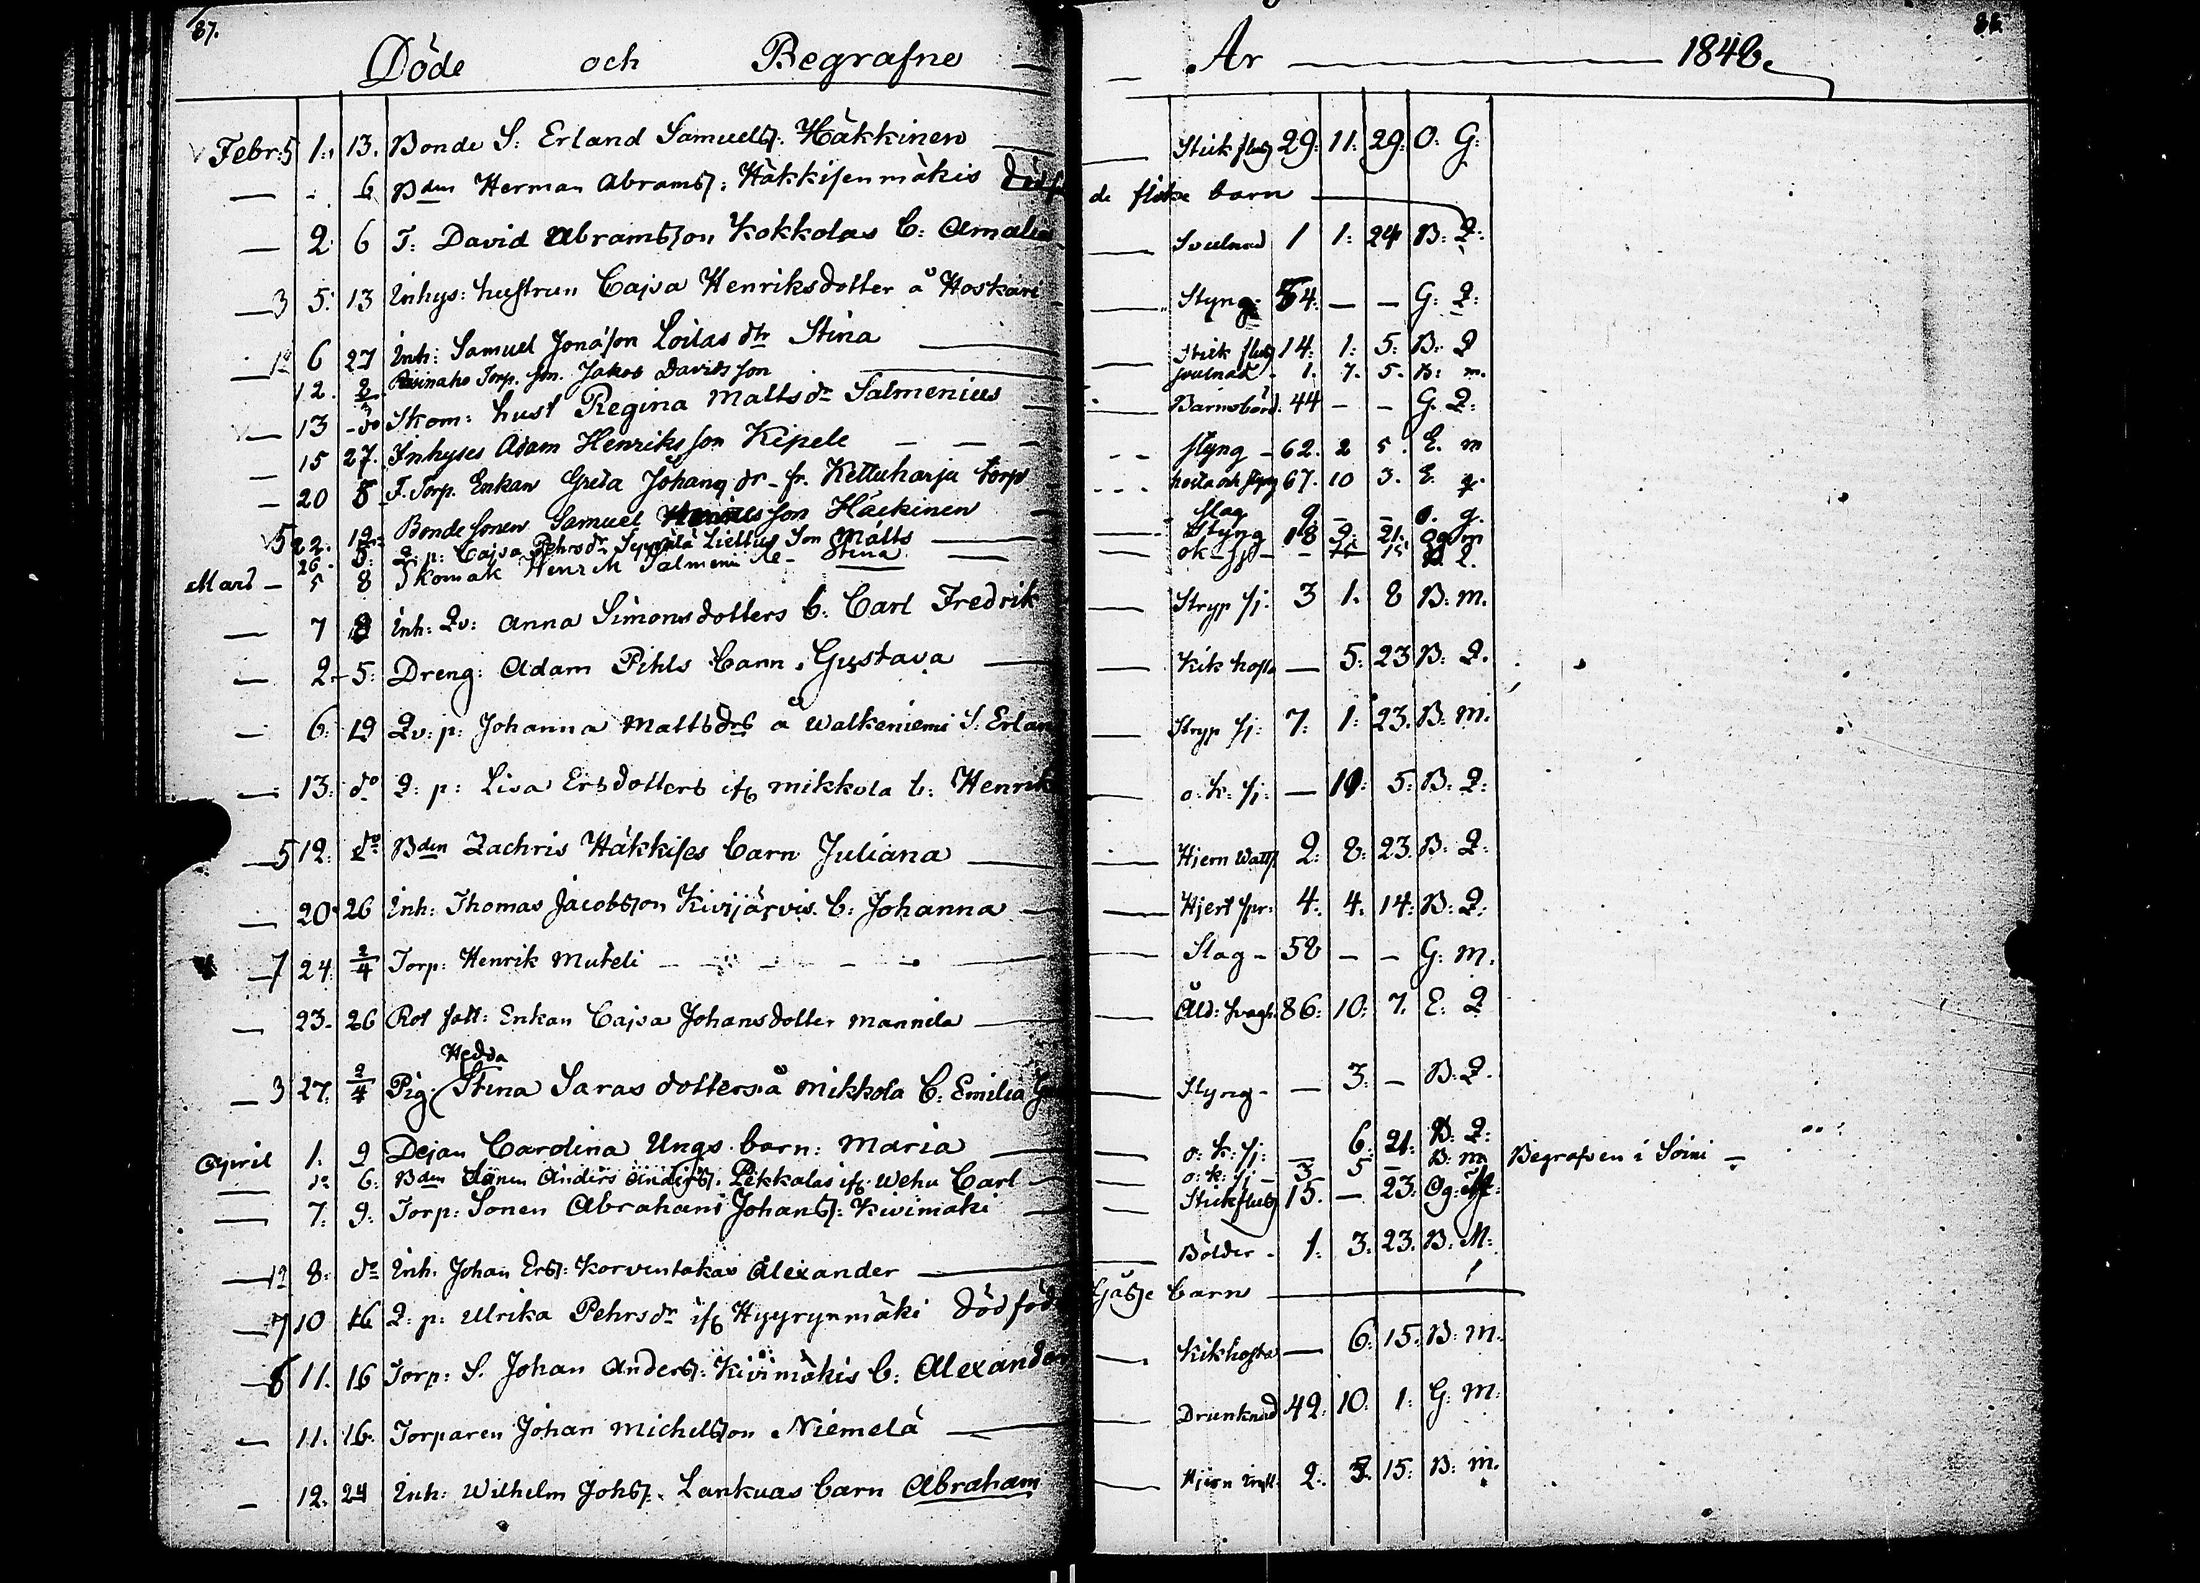 87.
Döde och Begrafne — Ar — 1848. 88.
Febr: 5 1. 13. Bonde S: Erland Samuelss: Häkkinen — Stickflusz 29. 11. 29. O. G.
— - 6 Bden Herman Abramss: Häkkisenmäkis död fö de flicke barn —
— 2 6 T: David Abramsson Kokkolas b: Amalia — Svulnad 1 1. 24 B: Q:
— 3 5. 13 Inhys: hustrun Cajsa Henriksdotter å Hoskari — Styng 54. — — G: Q:
— 12 6 27 Inh: Samuel Jonasson Loilas dtr Stina — Stick flusz 14. 1. 5. B: Q
12. 2/3 Torp. son. Jakob Davidsson — svulnad 1. 7. 5. B: m.
— 13 do Skom: hust Regina Mattsdr Salmenius — Barnsbörd 44 — — G. Q:
— 15 27. Inhyses Adam Henriksson Kipele — — — styng 62. 2 5. E. m
— 20 5 F. Torp. Enkan Greta Johans dr fr. Kettuharju torp — hosta och styng 67. 10 3. E. q.
5 22. 12 Bondesonen Samuel son Häckinen — slag 9 — — o. g.
26 5. Q: p: Cajsa Pehrsdr son Matts — Styng 18 9. 21. Og m
Mars — 5 8 Skomak Henrik Salmeni Stina — ok - sj — 15 B. Q.
— 7 8 Inh: Qv: Anna Simonsdotters b: Carl Fredrik — Stryp sj: 3 1. 8 B: m.
— 2 5: Dreng: Adam Pihls barn. Gustava — Kik hosta — 5: 23 B: Q.
— 6. 19 Qv: p: Johanna Mattsdrs å Walkeniemi S: Erlan — Stryp sj: 7. 1. 23. B: m.
— 13. do Q: p: Lisa Ersdotters ifr mikkola b: Henrik — o: k: sj: — 10. 5: B: Q:
— 5 12. do Bden Zachris Häkkises barn Juliana — Hjern watts 2: 8: 23. B: Q:
— 20 26 Inh: Thomas Jacobsson Kivijärvis. b: Johanna — Hjert spr: 4. 4. 14: B: Q:
— 7 24. 2/4 Torp: Henrik Muteli — Slag - 58 — — G: m.
— 23. 26 Rot fatt: Enkan Cajsa Johansdotter Mannila — Åld: svagh. 86. 10. 7. E: Q
Hedda
— 3 27. 2/4 Pig: Stina Saras dotters å Mikkola b: Emilia — Styng - — 3: — B: Q.
April 1. 9 Dejan Carolina Ungs barn: Maria — o: k: sj: — 6. 21. B: Q:
— do 6. Bden Sonen Anders Anderss. Pekkalas ifr Wehu Carl — o: k: sj — 3 5 — B: m Begrafven i Soini —
— 7. 9: Torp: Sonen Abraham Johanss: Kivimäki — Stickflusz 15. — 23. Og:
— 12 8. do Inh. Johan Erss: Korventakas Alexander — Bölder - 1. 3. 23. B: M:
— 7 10 16 Q: p: Ulrika Pehrsdr ifr Hyyrynmäki död född barn —
— 8 11. 16 Torp: S. Johan Anderss: Kivimäkis b: Alexander — Kikhosta — 6. 15. B: m.
— 11. 16. Torparen Johan Michelsson Niemelä — Drunknad 42. 10. 1. G: m.
— 12. 24 Inh: Wilhelm Johss: Lankuas barn Abraham — Hjern 2. 3. 15: B: m.